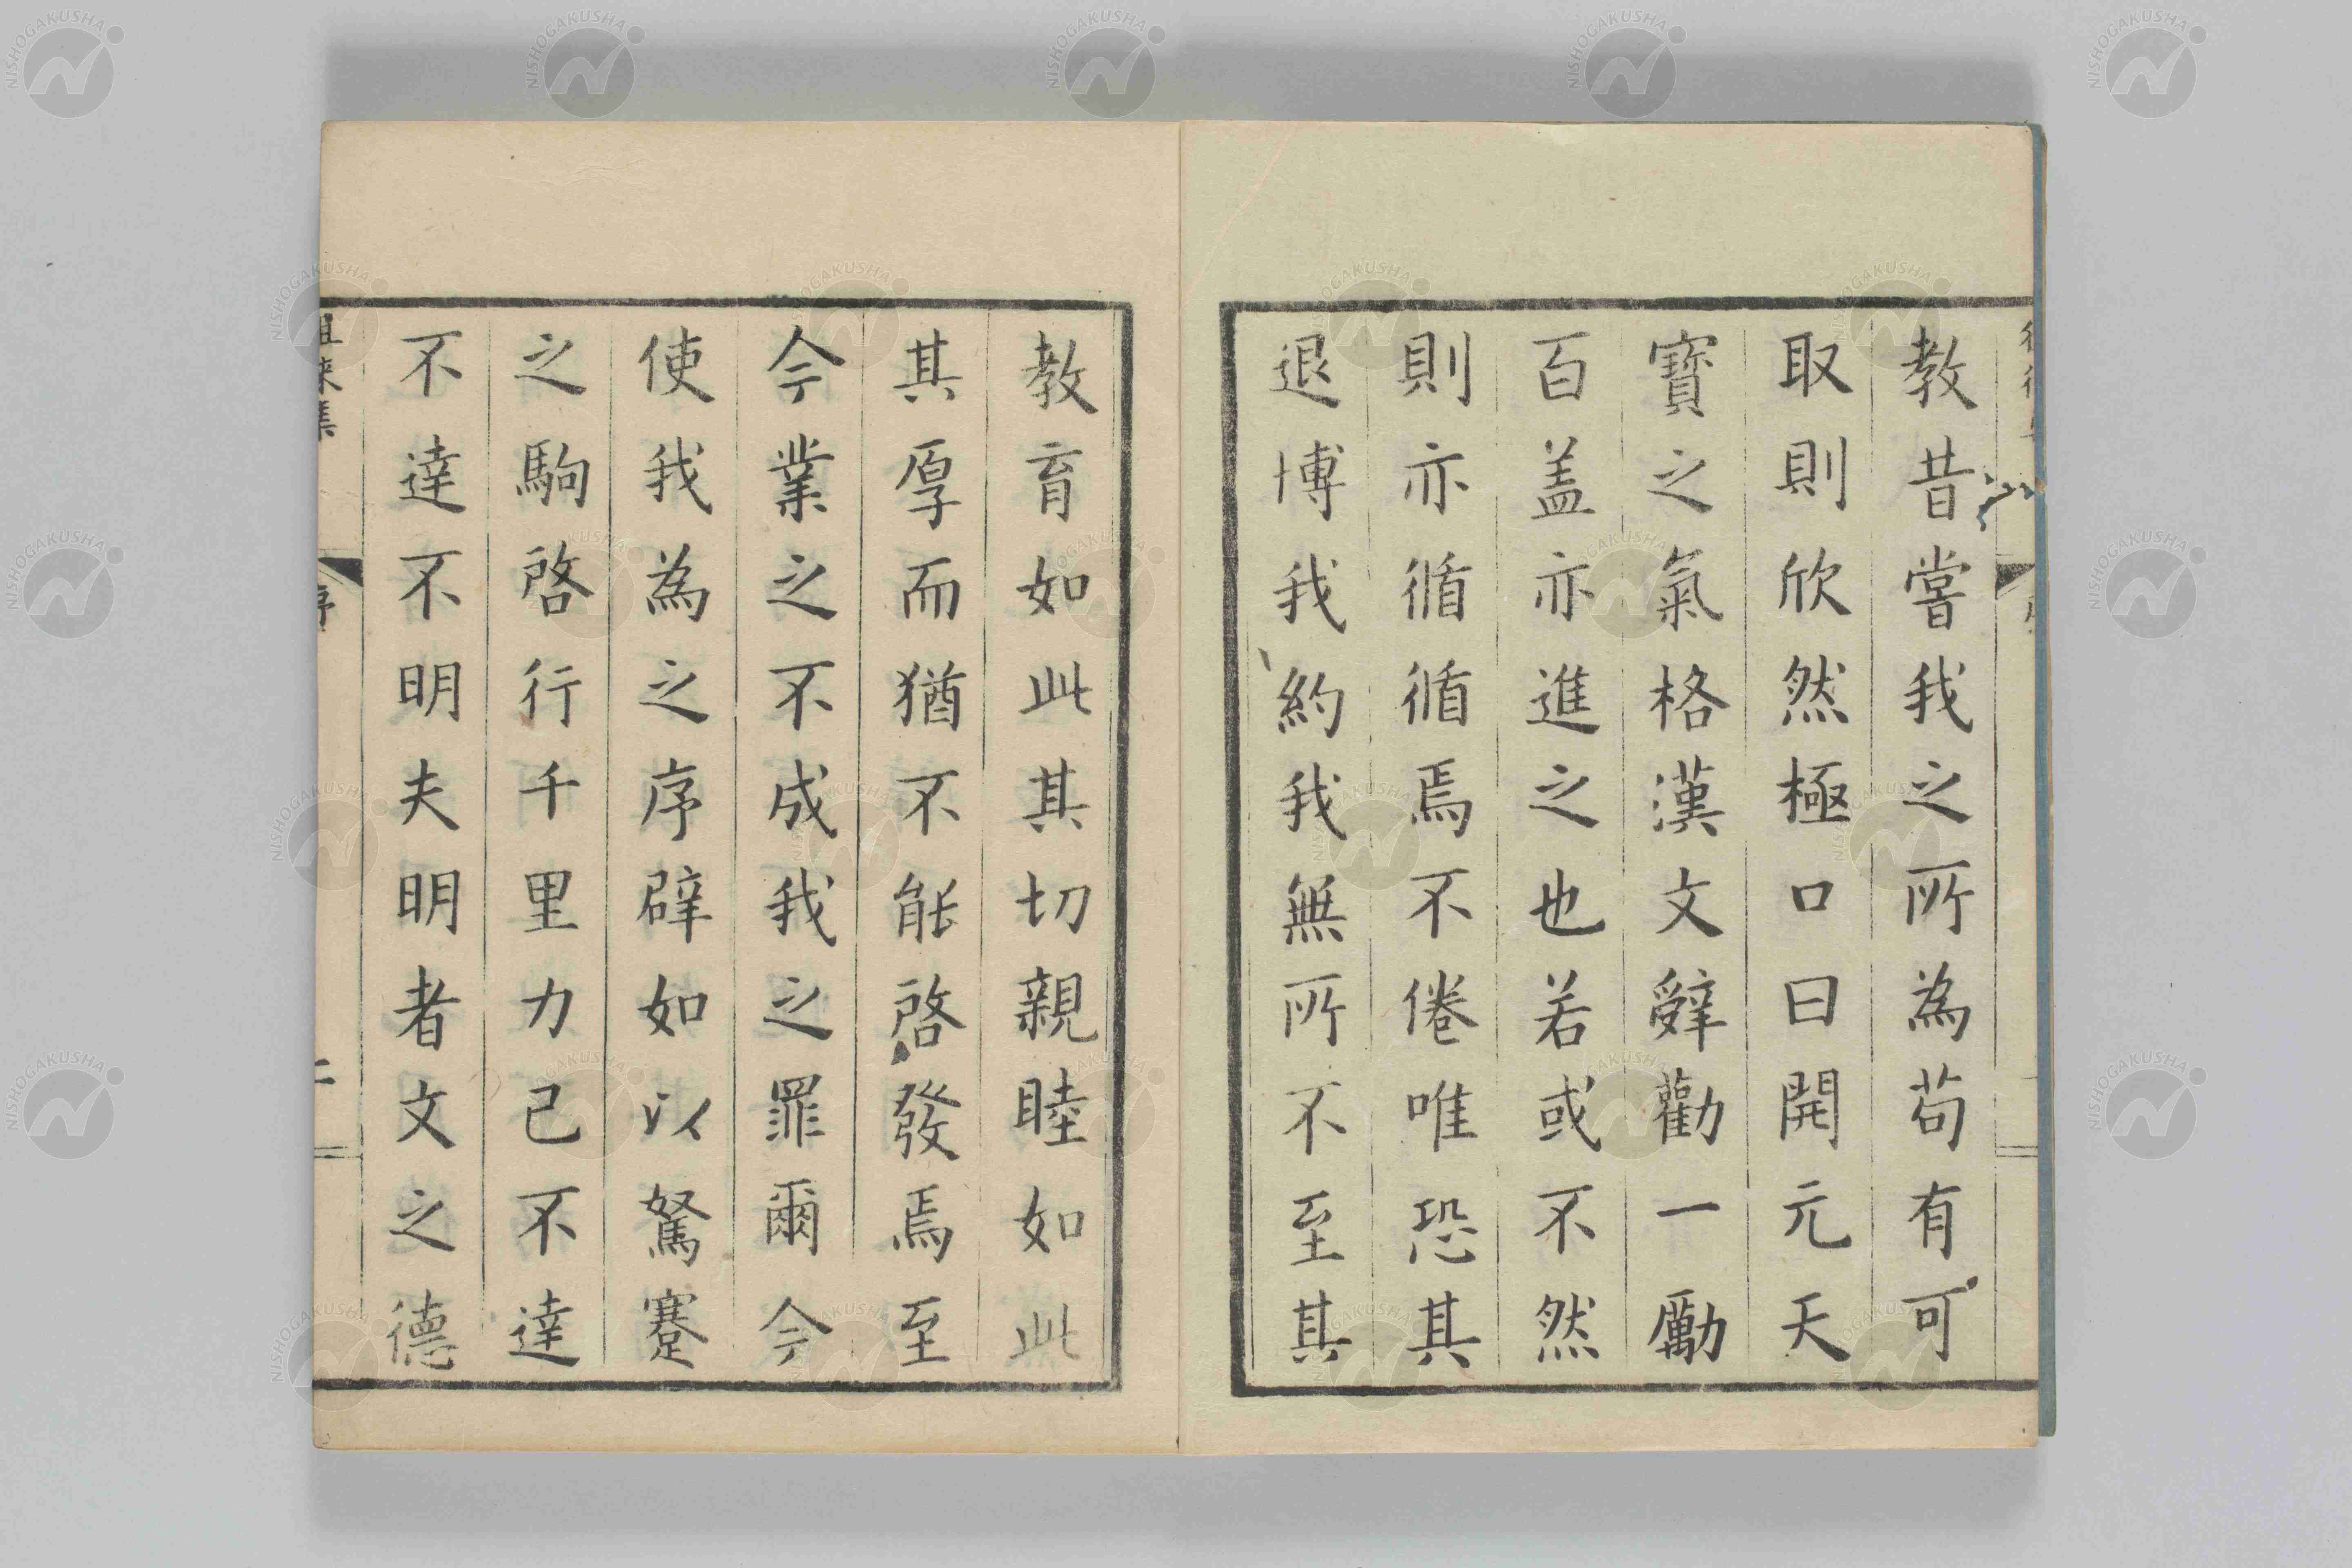 教昔嘗我之所為苟有可
取則欣然極口曰開元天
寶之氣格漢文辤勸一勵
百盖亦進之也若或不然
則亦循循焉不倦唯恐其
退博我約我無所不至其
教育如此其切親睦如此
其厚而猶不能啓發焉至
今業之不成我之罪爾今
使我為之序辟如以駑蹇
之駒啓行千里力己不達
不達不明夫明者文之德
序
二
NISHOGAKUSHA